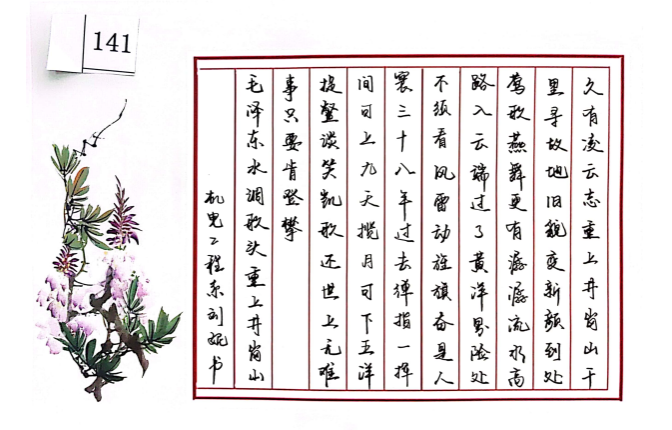 141
久有凌云志重上井岗山千
里寻故地旧貌变新颜到处
莺歌燕舞更有潺潺流水高
路入云端过了黄洋界险处
不须看风雷动旌旗奋是人
寰三十八年过去弹指一挥
间可上九天揽月可下五洋
捉鳖谈笑凯歌还世上无难
事只要肯登攀
毛泽东水调歌头重上井岗山
机电工程系刘书